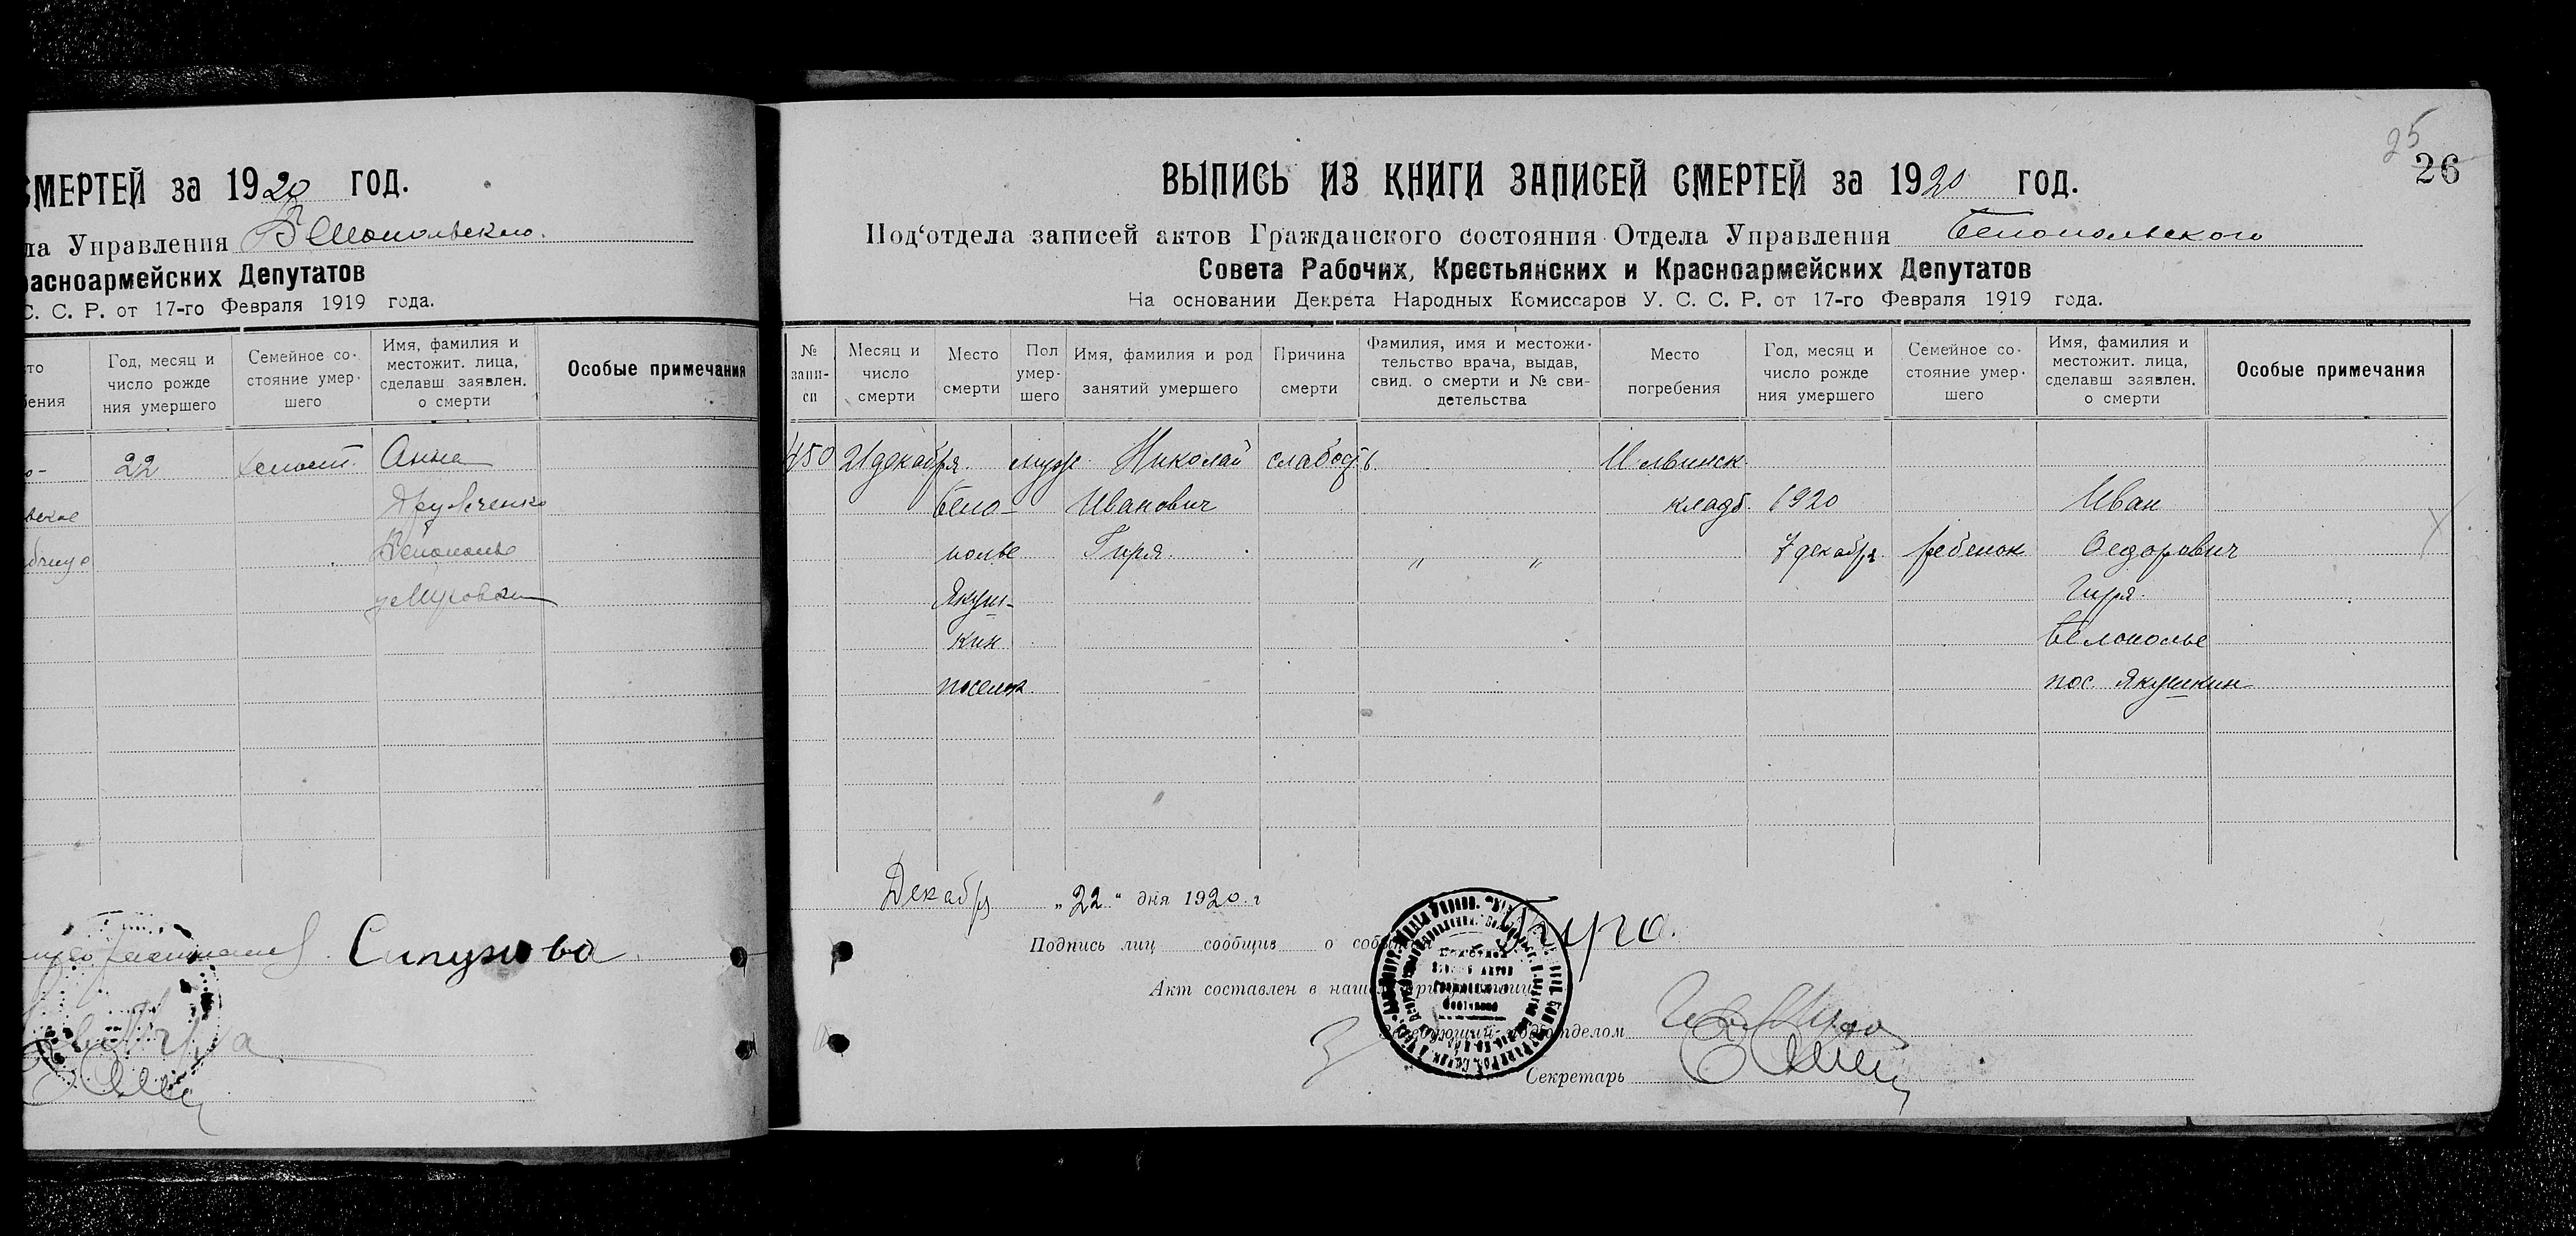 СМЕРТЕЙ за 1920 год.
ла Управления Белопольского.
расноармейских Депутатов
С. С. Р. от 17-го Февраля 1919 года.
Год, месяц и число рожде ния умершего
Семейное со- стояние умер- шего
Имя, фамилия и местожит. лица, сделавш заявлен. о смерти
Особые примечания
22 Анна
Белополье
25
26
ВЫПИСЬ ИЗ КНИГИ ЗАПИСЕЙ СМЕРТЕЙ за 1920 год.
Под‘отдела записей актов Гражданского состояния Отдела Управления Белопольского
Совета Рабочих, Крестьянских и Красноармейских Депутатов
На основании Декрета Народных Комиссаров У. С. С. Р. от 17-го Февраля 1919 года.
№ запи- си
Месяц и число смерти
Место смерти
Пол умер- шего
Имя, фамилия и род занятий умершего
Причина смерти
Фамилия, имя и местожи- тельство врача, выдав, свид. о смерти и № сви- детельства
Место погребения
Год, месяц и число рожде ния умершего
Семейное со- стояние умер- шего
Имя, фамилия и местожит. лица, сделавш заявлен. о смерти
Особые примечания
450 21 декабря. муж. Николай слабость Ильинск.
Бело- Иванович кладб. 1920 Иван
полье Гиря. „ „ 7 декабря ребенок Федорович
Якуш- Гиря.
кин Белополье
поселок пос. Якушкин
Декабря „22“ дня 1920 г
Подпись лиц сообщив о Гиря.
Акт составлен в
Секретарь